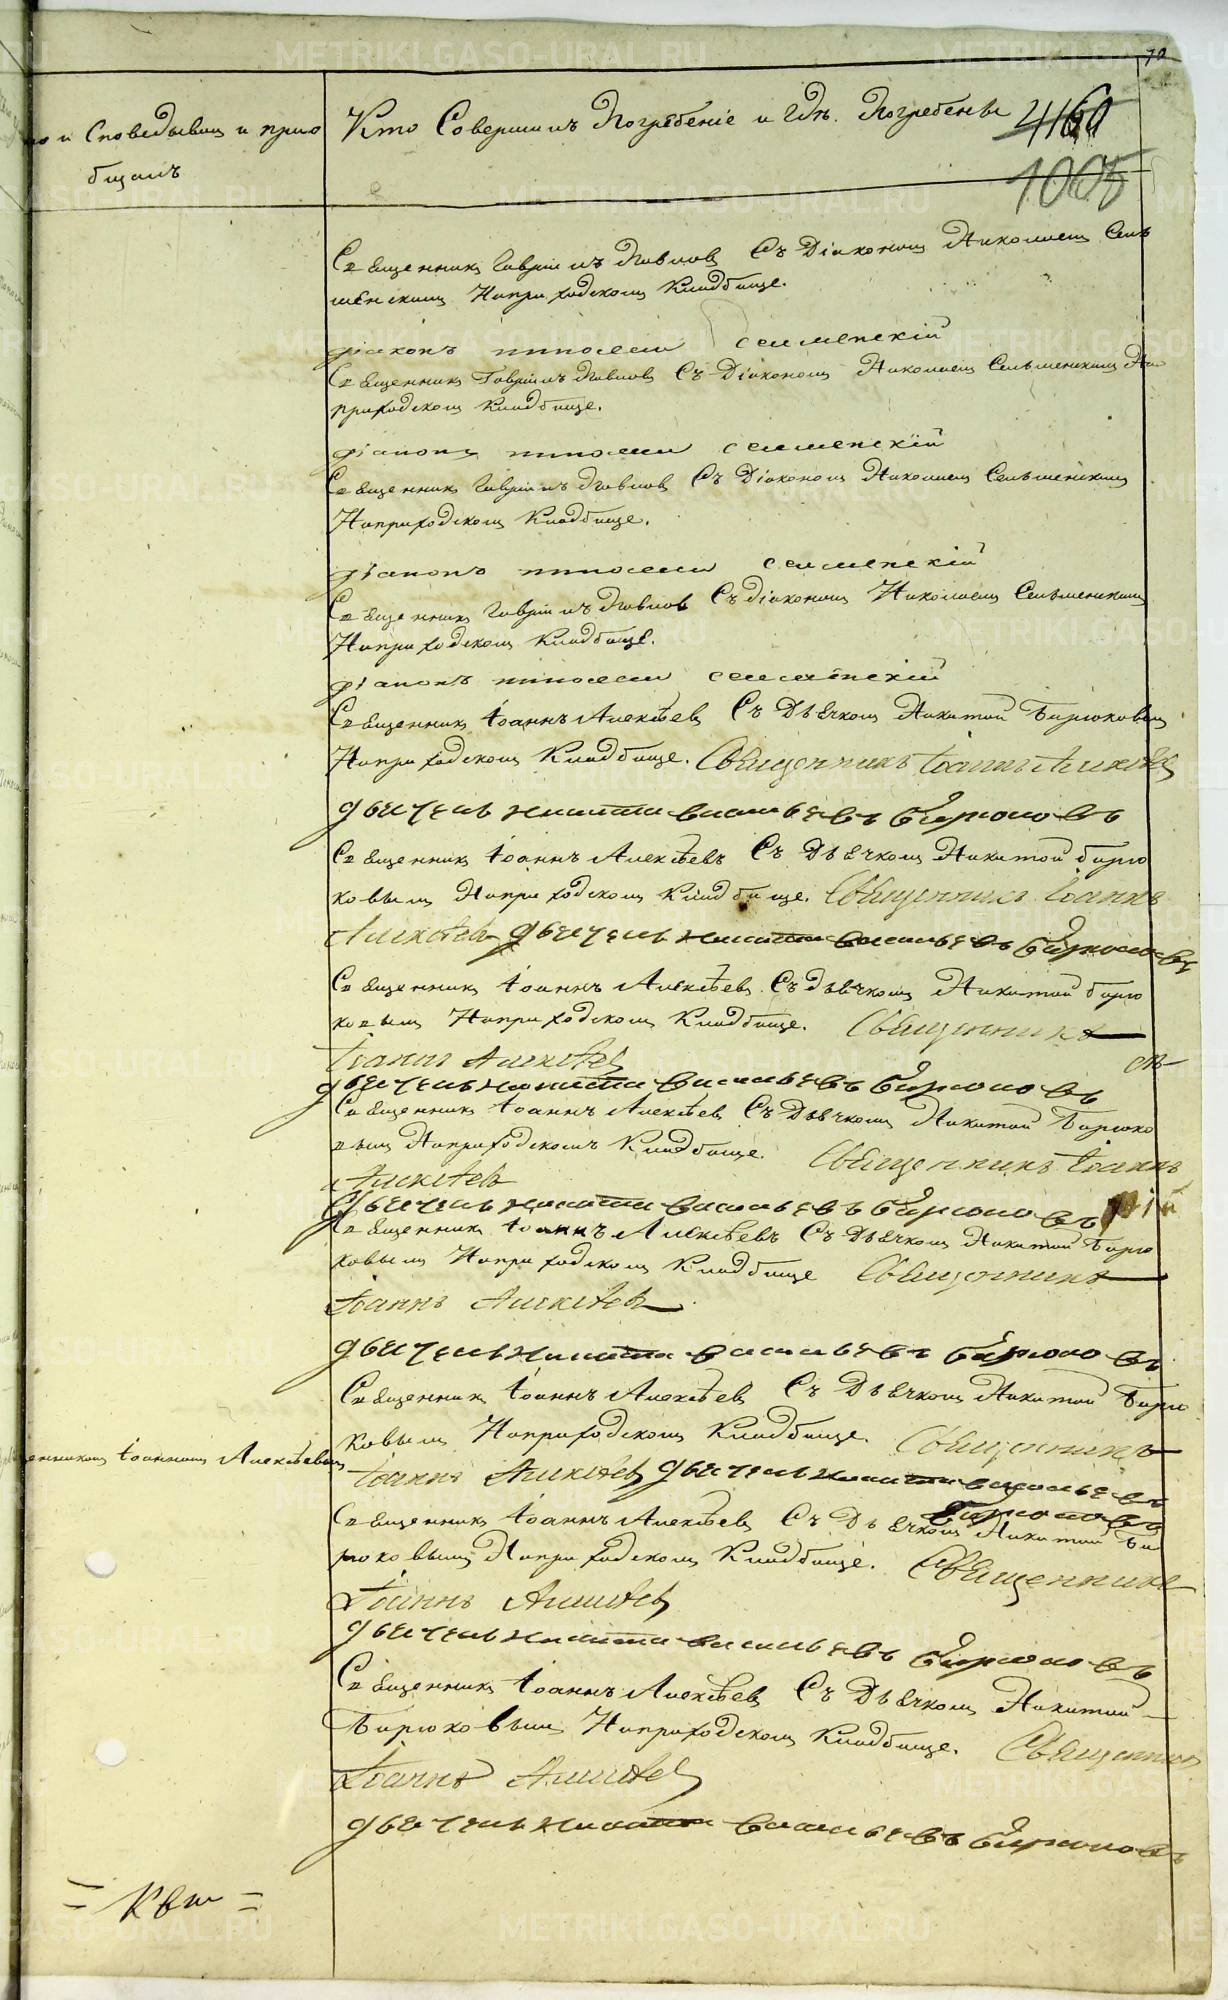 70
Кто Совершилъ Погребеніе и Гдѣ Погребены 4160
1005
и Споведывалъ и прио
бщалъ
Священникъ Гавріилъ Павловъ Съ Діакономъ Николаемъ Сель
менскимъ На приходскомъ Кладбище.
діаконъ николай селменскій
Священникъ Гавріилъ Павловъ Съ Діакономъ Николаемъ Сельменскимъ На
приходскомъ Кладбище.
діаконъ николай селменскій
Священникъ Гавріилъ Павловъ Съ Діакономъ Николаемъ Сельменскимъ
На приходскомъ Кладбище.
діаконъ николай селменскій
Священникъ Гавріилъ Павловъ Съ діакономъ Николаемъ Сельменскимъ
На приходскомъ Кладбище.
діаконъ николай селменскій
Священникъ Іоаннъ Алексѣевъ Съ Дьячкомъ Никитой Бирюковымъ
На приходскомъ Кладбище. Священникъ Іоаннъ Алексѣевъ
дьячекъ никита васильевъ бирюковъ
Священникъ Іоаннъ Алексѣевъ Съ Дьячкомъ Никитой бирю
ковымъ На приходскомъ Кладбище. Священникъ Іоаннъ
Алексѣевъ дьячекъ никита васильевъ бирюковъ
Священникъ Іоаннъ Алексѣевъ Съ дьячкомъ Никитой бирю
ковымъ На приходскомъ Кладбище. Священникъ
Іоаннъ Алексѣевъ
дьячекъ никита васильевъ бирюковъ
Священникъ Іоаннъ Алексѣевъ Съ Дьячкомъ Никитой Бирюко
вымъ На приходскомъ Кладбище. Священникъ Іоаннъ
Алексѣевъ
дьячекъ никита васильевъ бирюковъ
Священникъ Іоаннъ Алексѣевъ Съ Дьячкомъ Никитой Бирю
ковымъ На приходскомъ Кладбище Священникъ
Іоаннъ Алексѣевъ
дьячекъ никита васильевъ бирюковъ
Священникъ Іоаннъ Алексѣевъ Съ Дьячкомъ Никитой Бирю
ковымъ На приходскомъ Кладбище. Священникъ
енникомъ Іоанномъ Алексѣевымъ
Іоаннъ Алексѣевъ дьячекъ никита васильевъ
бирюковъ
Священникъ Іоаннъ Алексѣевъ Съ Дьячкомъ Никитой Би
рюковымъ На приходскомъ Кладбище. Священникъ
Іоаннъ Алексѣевъ
дьячекъ никита васильевъ бирюковъ
Священникъ Іоаннъ Алексѣевъ Съ Дьячкомъ Никитой
Бирюковымъ На приходскомъ Кладбище. Священникъ
Іоаннъ Алексѣевъ
дьячекъ никита васильевъ бирюковъ